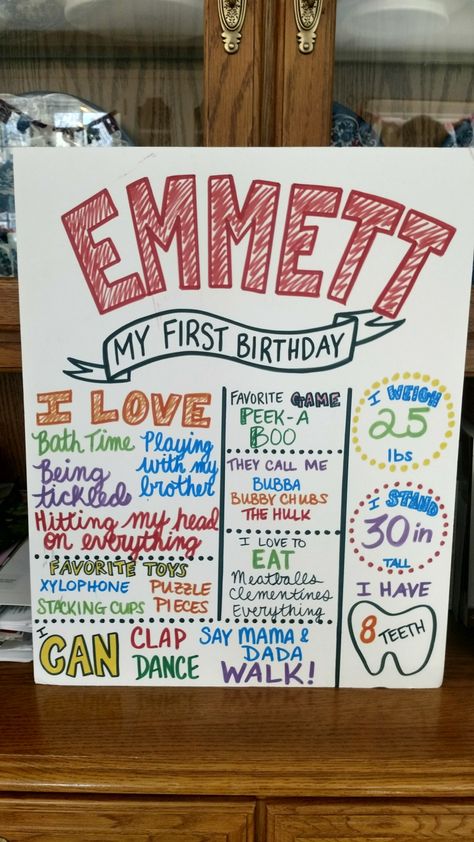 EMMETT
MY FIRST BIRTHDAY
I LOVE
Bath Time
Being
tickled
Playing
with my
brother
Hitting my head
on everything
FAVORITE TOYS
XYLOPHONE
STACKING CUPS
PUZZLE
PIECES
FAVORITE GAME
PEEK-A
BOO
THEY CALL ME
BUBBA
BUBBY CHUBS
THE HULK
I LOVE TO
EAT
Meatballs
Clementines
Everything
I WEIGH
25
lbs
I STAND
30 in
TALL
I HAVE
8 TEETH
I
CAN
CLAP
DANCE
SAY MAMA &
DADA
WALK!